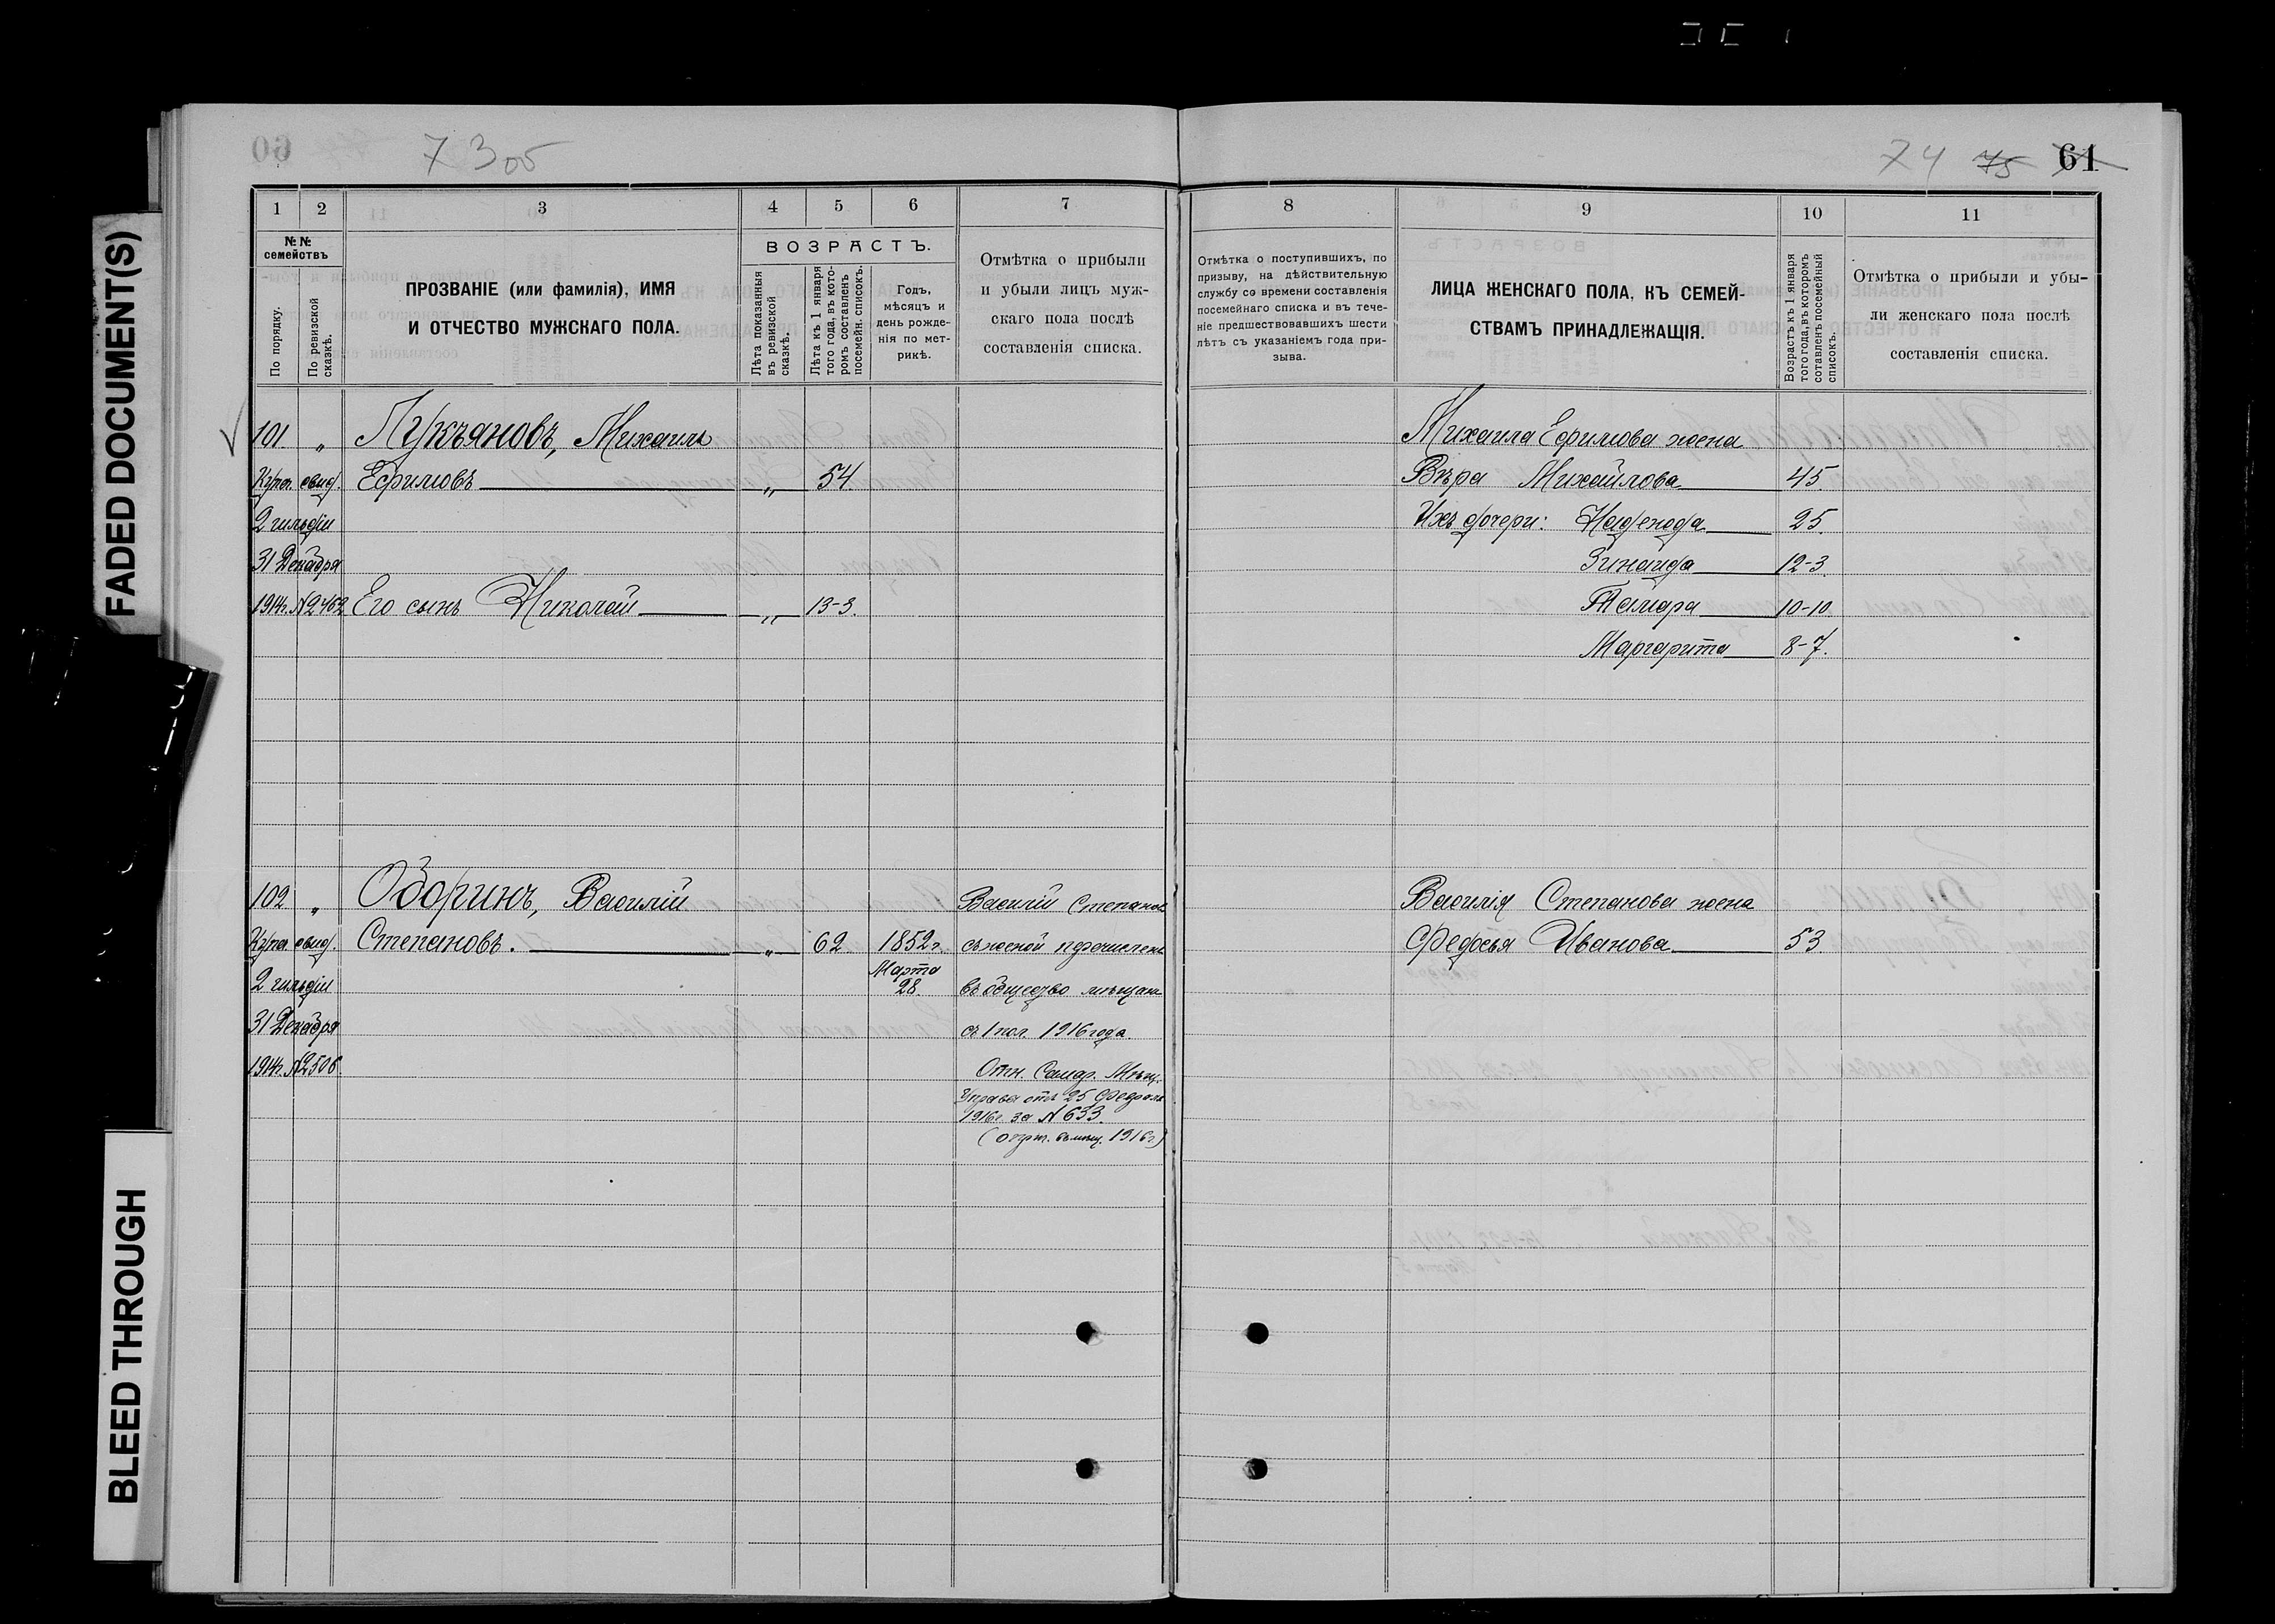 FADED DOCUMENT(S)
BLEED THROUGH
7 3 об
74 75 61
1 2 3 4 5 6 7
№№ семействъ
По порядку.
По ревизской сказкѣ.
ПРОЗВАНІЕ (или фамилія), ИМЯ
И ОТЧЕСТВО МУЖСКАГО ПОЛА.
ВОЗРАСТЪ.
Лѣта показанныя
въ ревизской
сказкѣ.
Лѣта къ 1 января
того года, въ кото-
ромъ составленъ
посемейн. списокъ.
Годъ,
мѣсяцъ и
день рожде-
нія по мет-
рикѣ.
Отмѣтка о прибыли
и убыли лицъ муж-
скаго пола послѣ
составленія списка.
101. " Лукъяновъ, Михаилъ
Купч. свид. Ефимовъ " 54
2 гильдіи
31 Декабря
1914г. № 2462 Его сынъ Николай " 13-3.
102 " Оборинъ, Василій Василій Степановъ
Купч. свид. Степановъ. " 62 1852г. съ женой перечисленъ
2 гильдіи Марта 28. въ общество мѣщанъ
31 Декабря съ 1 пол. 1916 года.
1914г. № 2506. Отн. Самар. Мѣщ.
Управы отъ 25 Февраля
1916г. за № 633.
8 9 10 11
Отмѣтка о поступившихъ, по
призыву, на дѣйствительную
службу со времени составленія
посемейнаго списка и въ тече-
ніе предшествовавшихъ шести
лѣтъ съ указаніемъ года при-
зыва.
ЛИЦА ЖЕНСКАГО ПОЛА, КЪ СЕМЕЙ-
СТВАМЪ ПРИНАДЛЕЖАЩІЯ.
Возрастъ къ 1 января
того года, въ которомъ
составленъ посемейный
списокъ.
Отмѣтка о прибыли и убы-
ли женскаго пола послѣ
составленія списка.
Михаила Ефимова жена
Вѣра Михайлова 45.
Ихъ дочери: Надежда 25.
Зинаида 12-3.
Тамара 10-10
Маргарита 8-7.
Василія Степанова жена
Федосья Иванова 53.